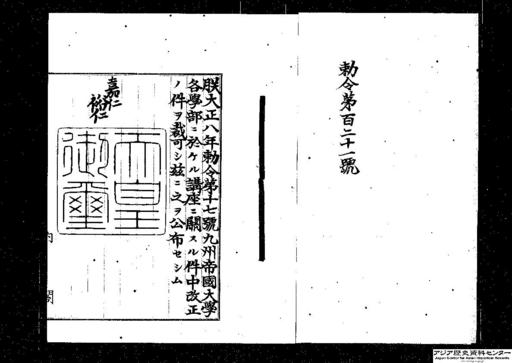 勅令第百二十一號
朕大正八年勅令第十七號九州帝國大學
各學部ニ於ケル講座ニ關スル件中改正
ノ件ヲ裁可シ茲ニ之ヲ公布セシム
嘉仁
裕仁
天皇
御璽
内閣
アジア歴史資料センター
Japan Center for Asian Historical Records